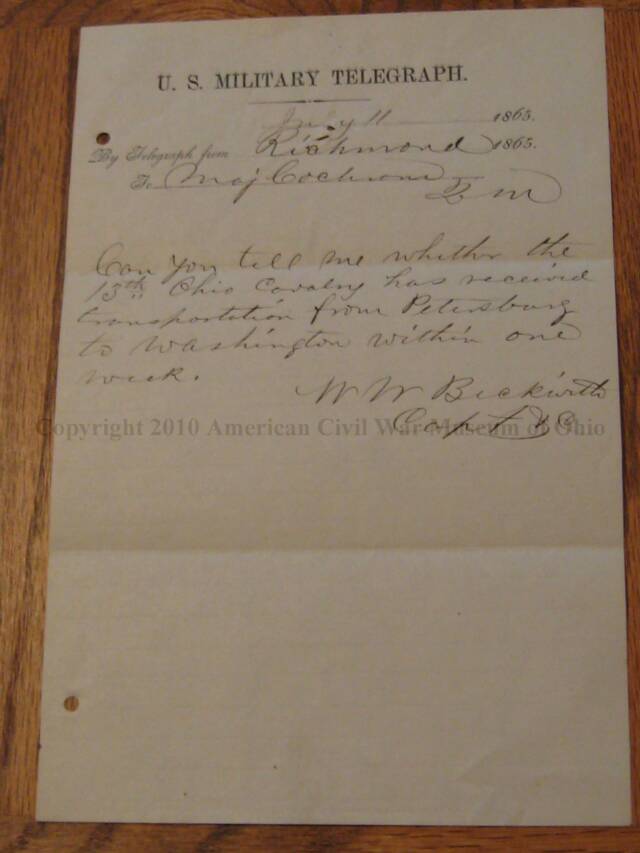 U. S. MILITARY TELEGRAPH.
July 11 1865.
By Telegraph from Richmond 1865.
To Maj Cochrane
Q M
Can you tell me whether the
13th Ohio Cavalry has received
transportation from Petersburg
to Washington within one
week.
W W Beckwith
Copyright 2010 American Civil War Museum of Ohio
Capt & A D C